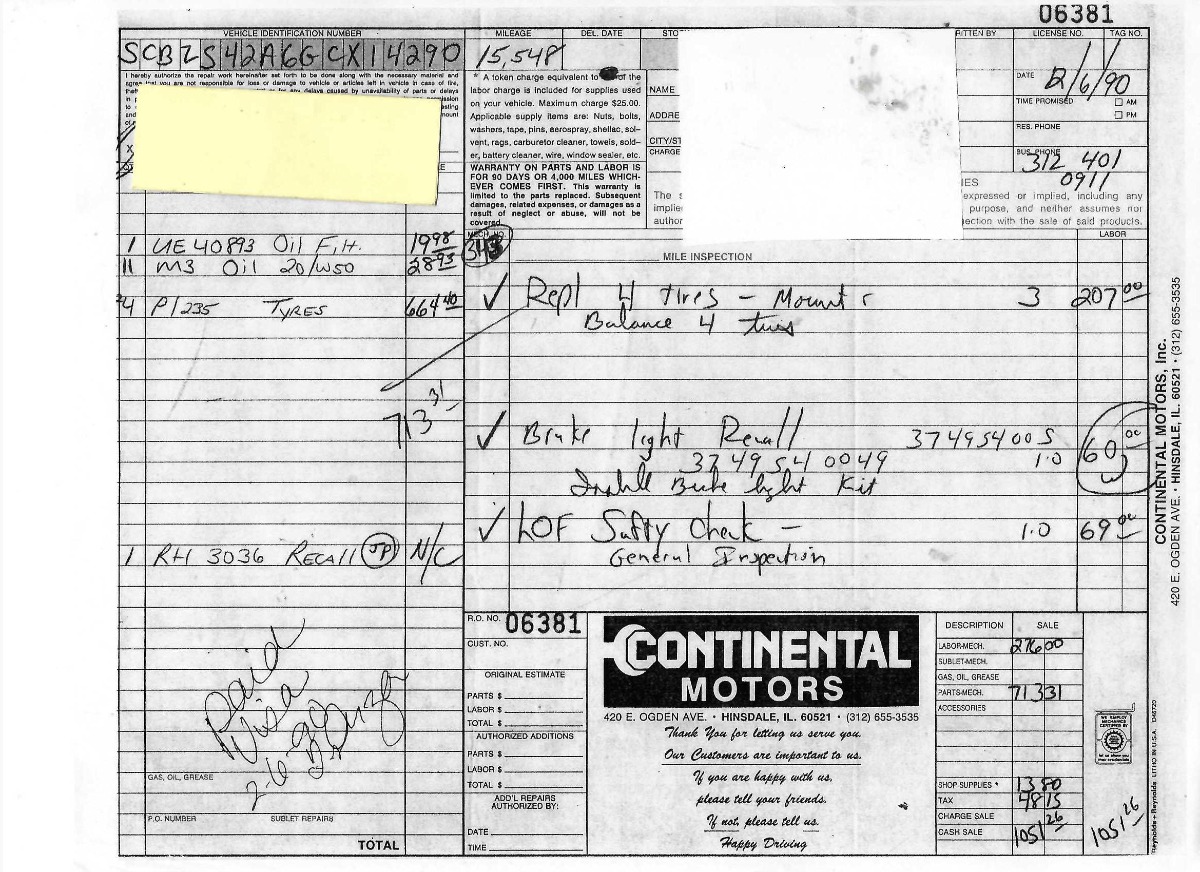 06381
VEHICLE IDENTIFICATION NUMBER
SCBZS42A6GCX14290
MILEAGE
15,548
DEL. DATE
LICENSE NO.
TAG NO.
I hereby authorize the repair work hereinafter set forth to be done along with the necessary material and
agree that you are not responsible for loss or damage to vehicle or articles left in vehicle in case of fire,
X
* A token charge equivalent to of the
labor charge is included for supplies used
on your vehicle. Maximum charge $25.00.
Applicable supply items are: Nuts, bolts,
washers, tape, pins, aerospray, shellac, sol-
vent, rags, carburetor cleaner, towels, sold-
er, battery cleaner, wire, window sealer, etc.
WARRANTY ON PARTS AND LABOR IS
FOR 90 DAYS OR 4,000 MILES WHICH-
EVER COMES FIRST. This warranty is
limited to the parts replaced. Subsequent
damages, related expenses, or damages as a
result of neglect or abuse, will not be
covered.
NAME
ADDRE
CITY/ST
CHARGE
DATE 2/6/90
TIME PROMISED
AM
PM
RES. PHONE
BUS. PHONE
312 401
0911
The s
implie
author
IES
expressed or implied, including any
purpose, and neither assumes nor
ection with the sale of said products.
MECH. NO.
343
LABOR
MILE INSPECTION
1 UE 40893 Oil Filt. 19.98
11 M3 Oil 20/W50 28.93
4 P/235 TYRES 664.40
713.31
1 RH 3036 RECALL JP N/C
✓ Repl 4 tires - Mount 3 207.00
Balance 4 tires
✓ Brake light Recall 374954005
3749540049 1.0 60.00
Brake light Kit
✓ LOF Safty Check - 1.0 69.00
General Inspection
Paid
Visa
2-6-90
GAS, OIL, GREASE
P.O. NUMBER
SUBLET REPAIRS
TOTAL
R.O. NO. 06381
CUST. NO.
ORIGINAL ESTIMATE
PARTS $
LABOR $
TOTAL $
AUTHORIZED ADDITIONS
PARTS $
LABOR $
TOTAL $
ADD'L REPAIRS
AUTHORIZED BY:
DATE
TIME
CONTINENTAL
MOTORS
420 E. OGDEN AVE. • HINSDALE, IL. 60521 • (312) 655-3535
Thank You for letting us serve you.
Our Customers are important to us.
If you are happy with us,
please tell your friends.
If not, please tell us.
Happy Driving
DESCRIPTION SALE
LABOR-MECH. 276 00
SUBLET-MECH.
GAS, OIL, GREASE
PARTS-MECH. 713 31
ACCESSORIES
SHOP SUPPLIES * 13 80
TAX 48 15
CHARGE SALE
CASH SALE 1051 26
1051 26
CONTINENTAL MOTORS, Inc.
420 E. OGDEN AVE. • HINSDALE, IL. 60521 • (312) 655-3535
WE EMPLOY
MECHANICS
CERTIFIED BY
let us show you
their credentials
Reynolds + Reynolds LITHO IN U.S.A.